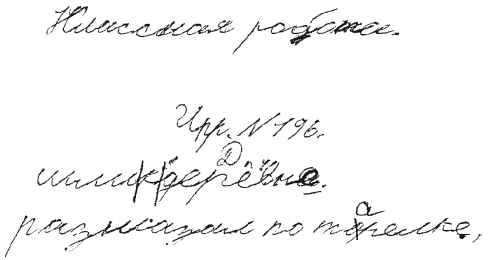 Классная работа.
Упр. N 196.
размазал по тарелке,